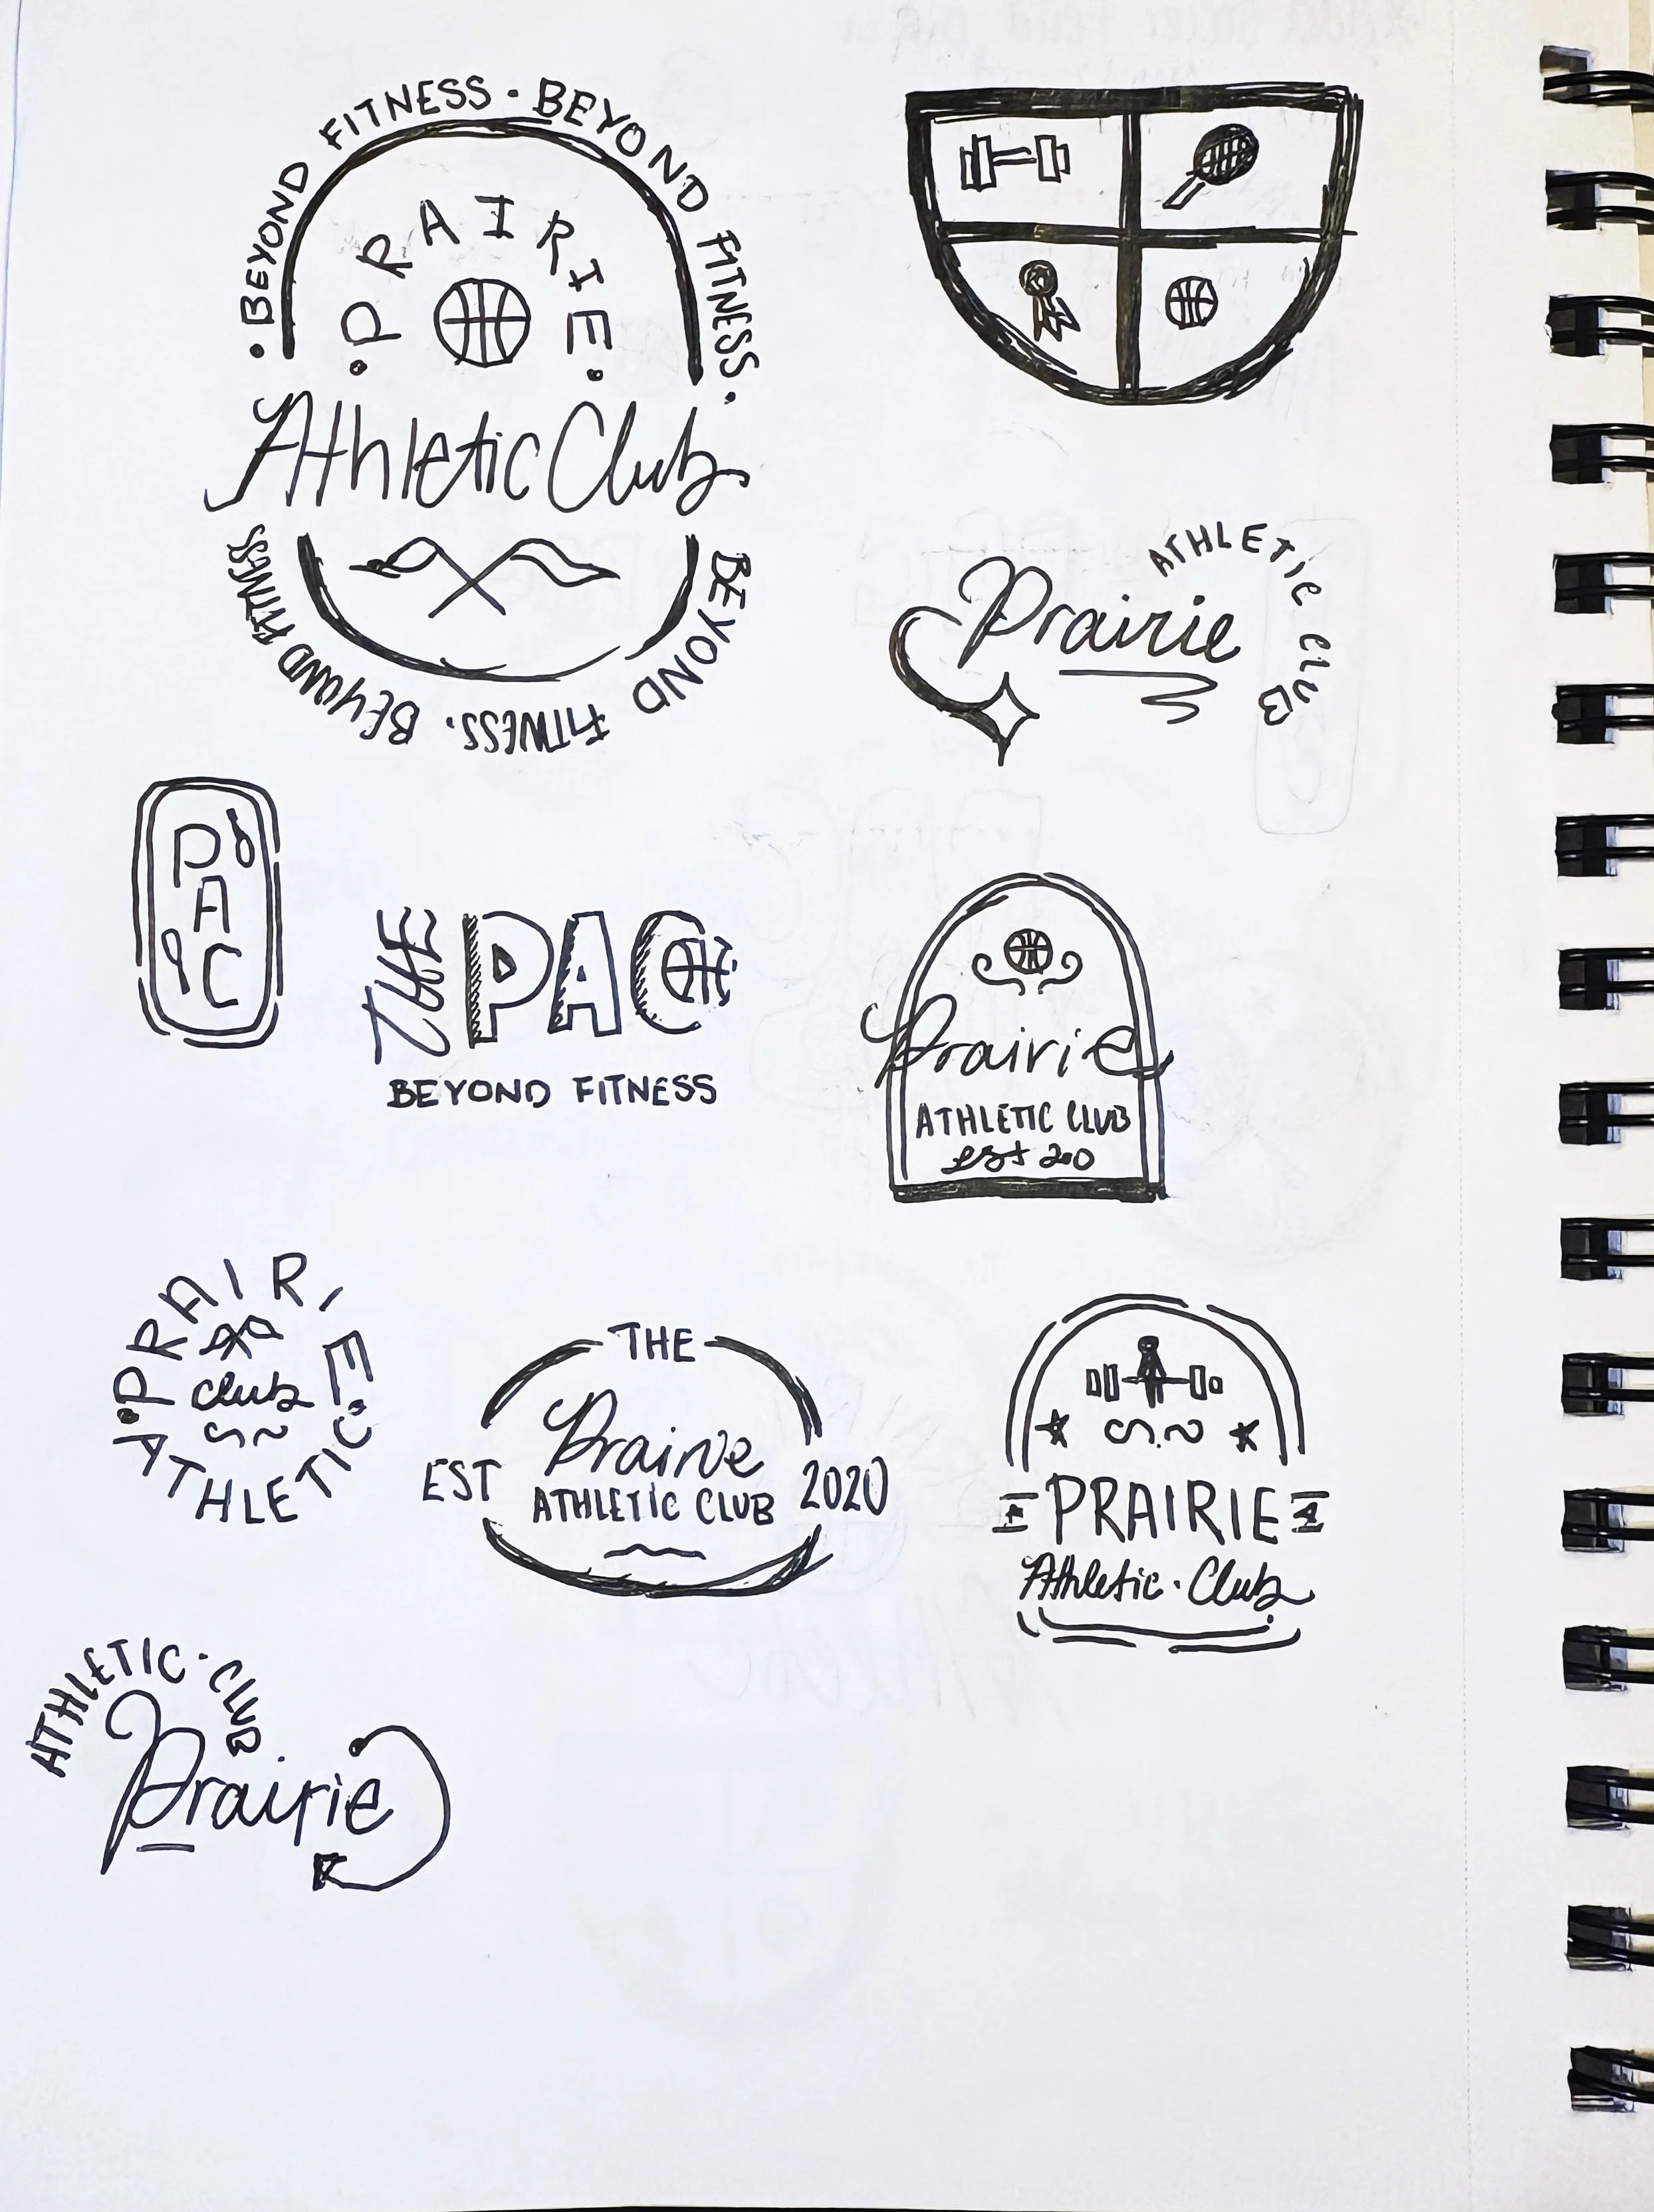 · BEYOND FITNESS · BEYOND FITNESS ·
· PRAIRIE ·
Athletic Club
BEYOND FITNESS. BEYOND FITNESS
ATHLETIC CLUB
Prairie
PAC
THE PAC
BEYOND FITNESS
Prairie
ATHLETIC CLUB
est 20
· PRAIRIE ·
club
ATHLETIC
THE
EST Prairie 2020
ATHLETIC CLUB
PRAIRIE
Athletic · Club
ATHLETIC · CLUB
Prairie